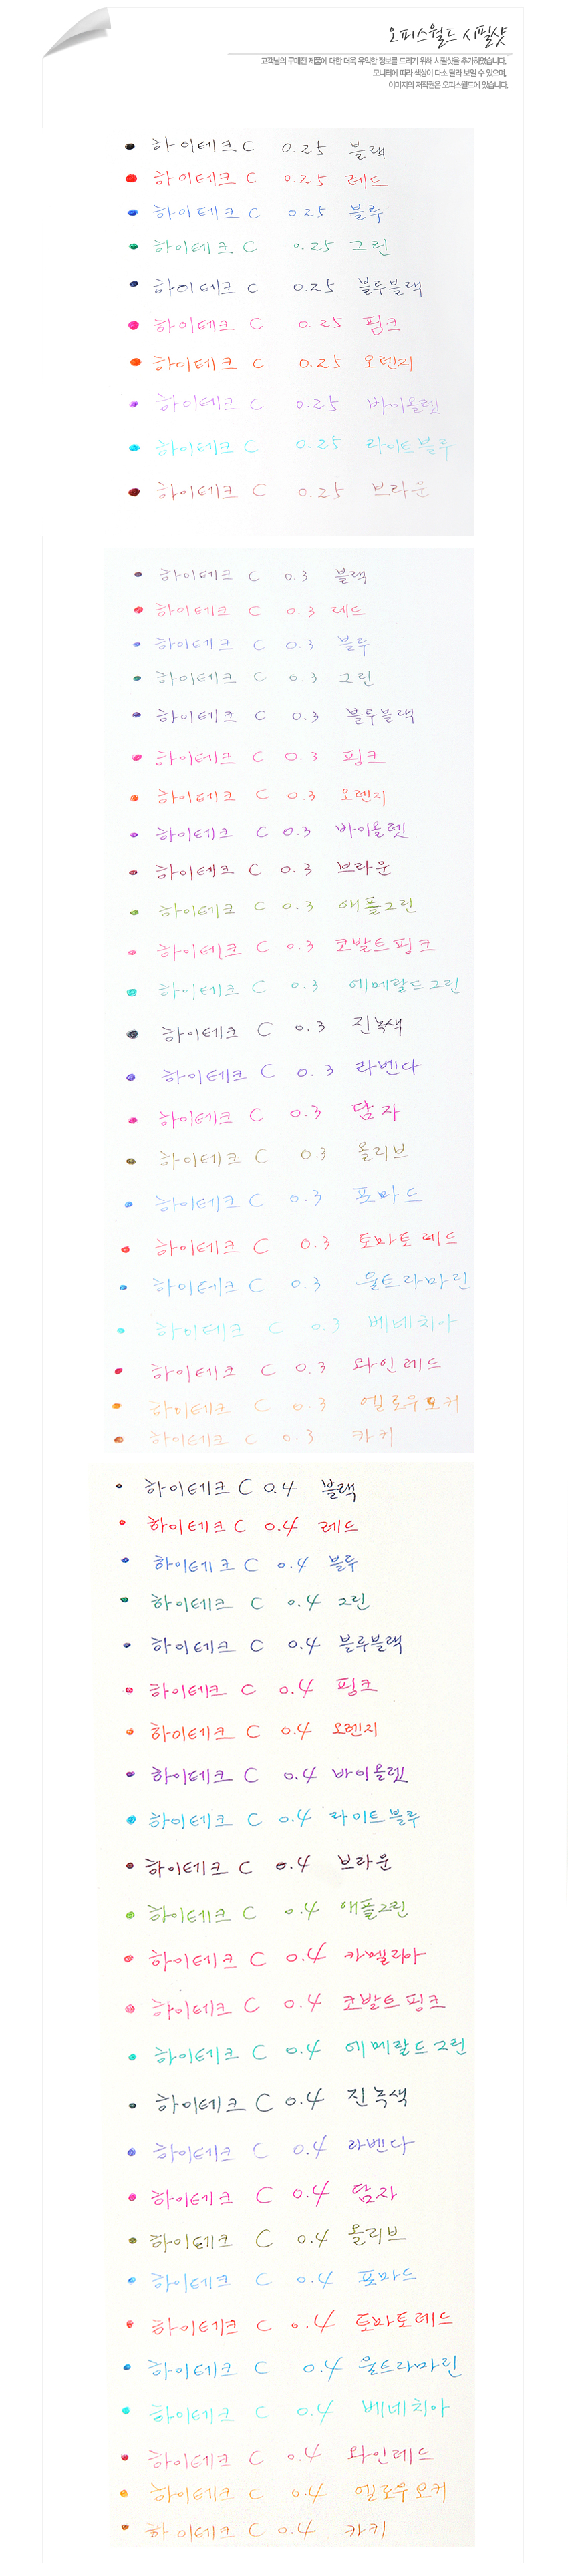 오피스월드 시필샷
고객님의 구매전 제품에 대한 더욱 유익한 정보를 드리기 위해 시필샷을 추가하였습니다.
모니터에 따라 색상이 다소 달라 보일 수 있으며,
이미지의 저작권은 오피스월드에 있습니다.
하이테크 C 0.25 블랙
하이테크 C 0.25 레드
하이테크 C 0.25 블루
하이테크 C 0.25 그린
하이테크 C 0.25 블루블랙
하이테크 C 0.25 핑크
하이테크 C 0.25 오렌지
하이테크 C 0.25 바이올렛
하이테크 C 0.25 라이트블루
하이테크 C 0.25 브라운
하이테크 C 0.3 블랙
하이테크 C 0.3 레드
하이테크 C 0.3 블루
하이테크 C 0.3 그린
하이테크 C 0.3 블루블랙
하이테크 C 0.3 핑크
하이테크 C 0.3 오렌지
하이테크 C 0.3 바이올렛
하이테크 C 0.3 브라운
하이테크 C 0.3 애플그린
하이테크 C 0.3 코발트핑크
하이테크 C 0.3 에메랄드그린
하이테크 C 0.3 진녹색
하이테크 C 0.3 라벤다
하이테크 C 0.3 담자
하이테크 C 0.3 올리브
하이테크 C 0.3 포마드
하이테크 C 0.3 토마토레드
하이테크 C 0.3 울트라마린
하이테크 C 0.3 베네치아
하이테크 C 0.3 와인레드
하이테크 C 0.3 옐로우오커
하이테크 C 0.3 카키
하이테크 C 0.4 블랙
하이테크 C 0.4 레드
하이테크 C 0.4 블루
하이테크 C 0.4 그린
하이테크 C 0.4 블루블랙
하이테크 C 0.4 핑크
하이테크 C 0.4 오렌지
하이테크 C 0.4 바이올렛
하이테크 C 0.4 라이트블루
하이테크 C 0.4 브라운
하이테크 C 0.4 애플그린
하이테크 C 0.4 카멜리아
하이테크 C 0.4 코발트핑크
하이테크 C 0.4 에메랄드그린
하이테크 C 0.4 진녹색
하이테크 C 0.4 라벤다
하이테크 C 0.4 담자
하이테크 C 0.4 올리브
하이테크 C 0.4 포마드
하이테크 C 0.4 토마토레드
하이테크 C 0.4 울트라마린
하이테크 C 0.4 베네치아
하이테크 C 0.4 와인레드
하이테크 C 0.4 옐로우오커
하이테크 C 0.4 카키